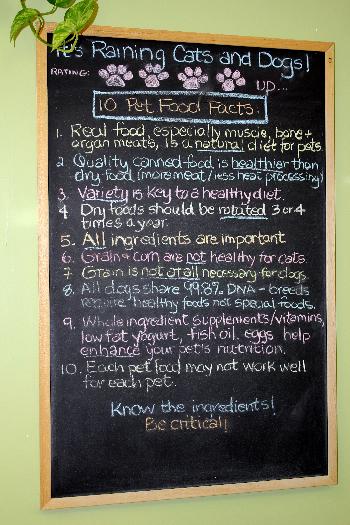 It's Raining Cats and Dogs!
RATING: UP...
10 Pet Food Facts:
1. Real food, especially muscle, bone +
organ meats, is a natural diet for pets.
2 Quality canned food is healthier than
dry food (more meat/less heat processing)
3. Variety is key to a healthy diet.
4 Dry foods should be rotated 3 or 4
times a year.
5. All ingredients are important
6. Grain + corn are not healthy for cats.
7 Grain is not at all necessary for dogs.
8. All dogs share 99.8% DNA - breeds
require healthy foods not special foods.
9. Whole ingredient supplements/vitamins,
low fat yogurt, fish oil, eggs help
enhance your pet's nutrition.
10. Each pet food may not work well
for each pet.
Know the ingredients!
Be critical!